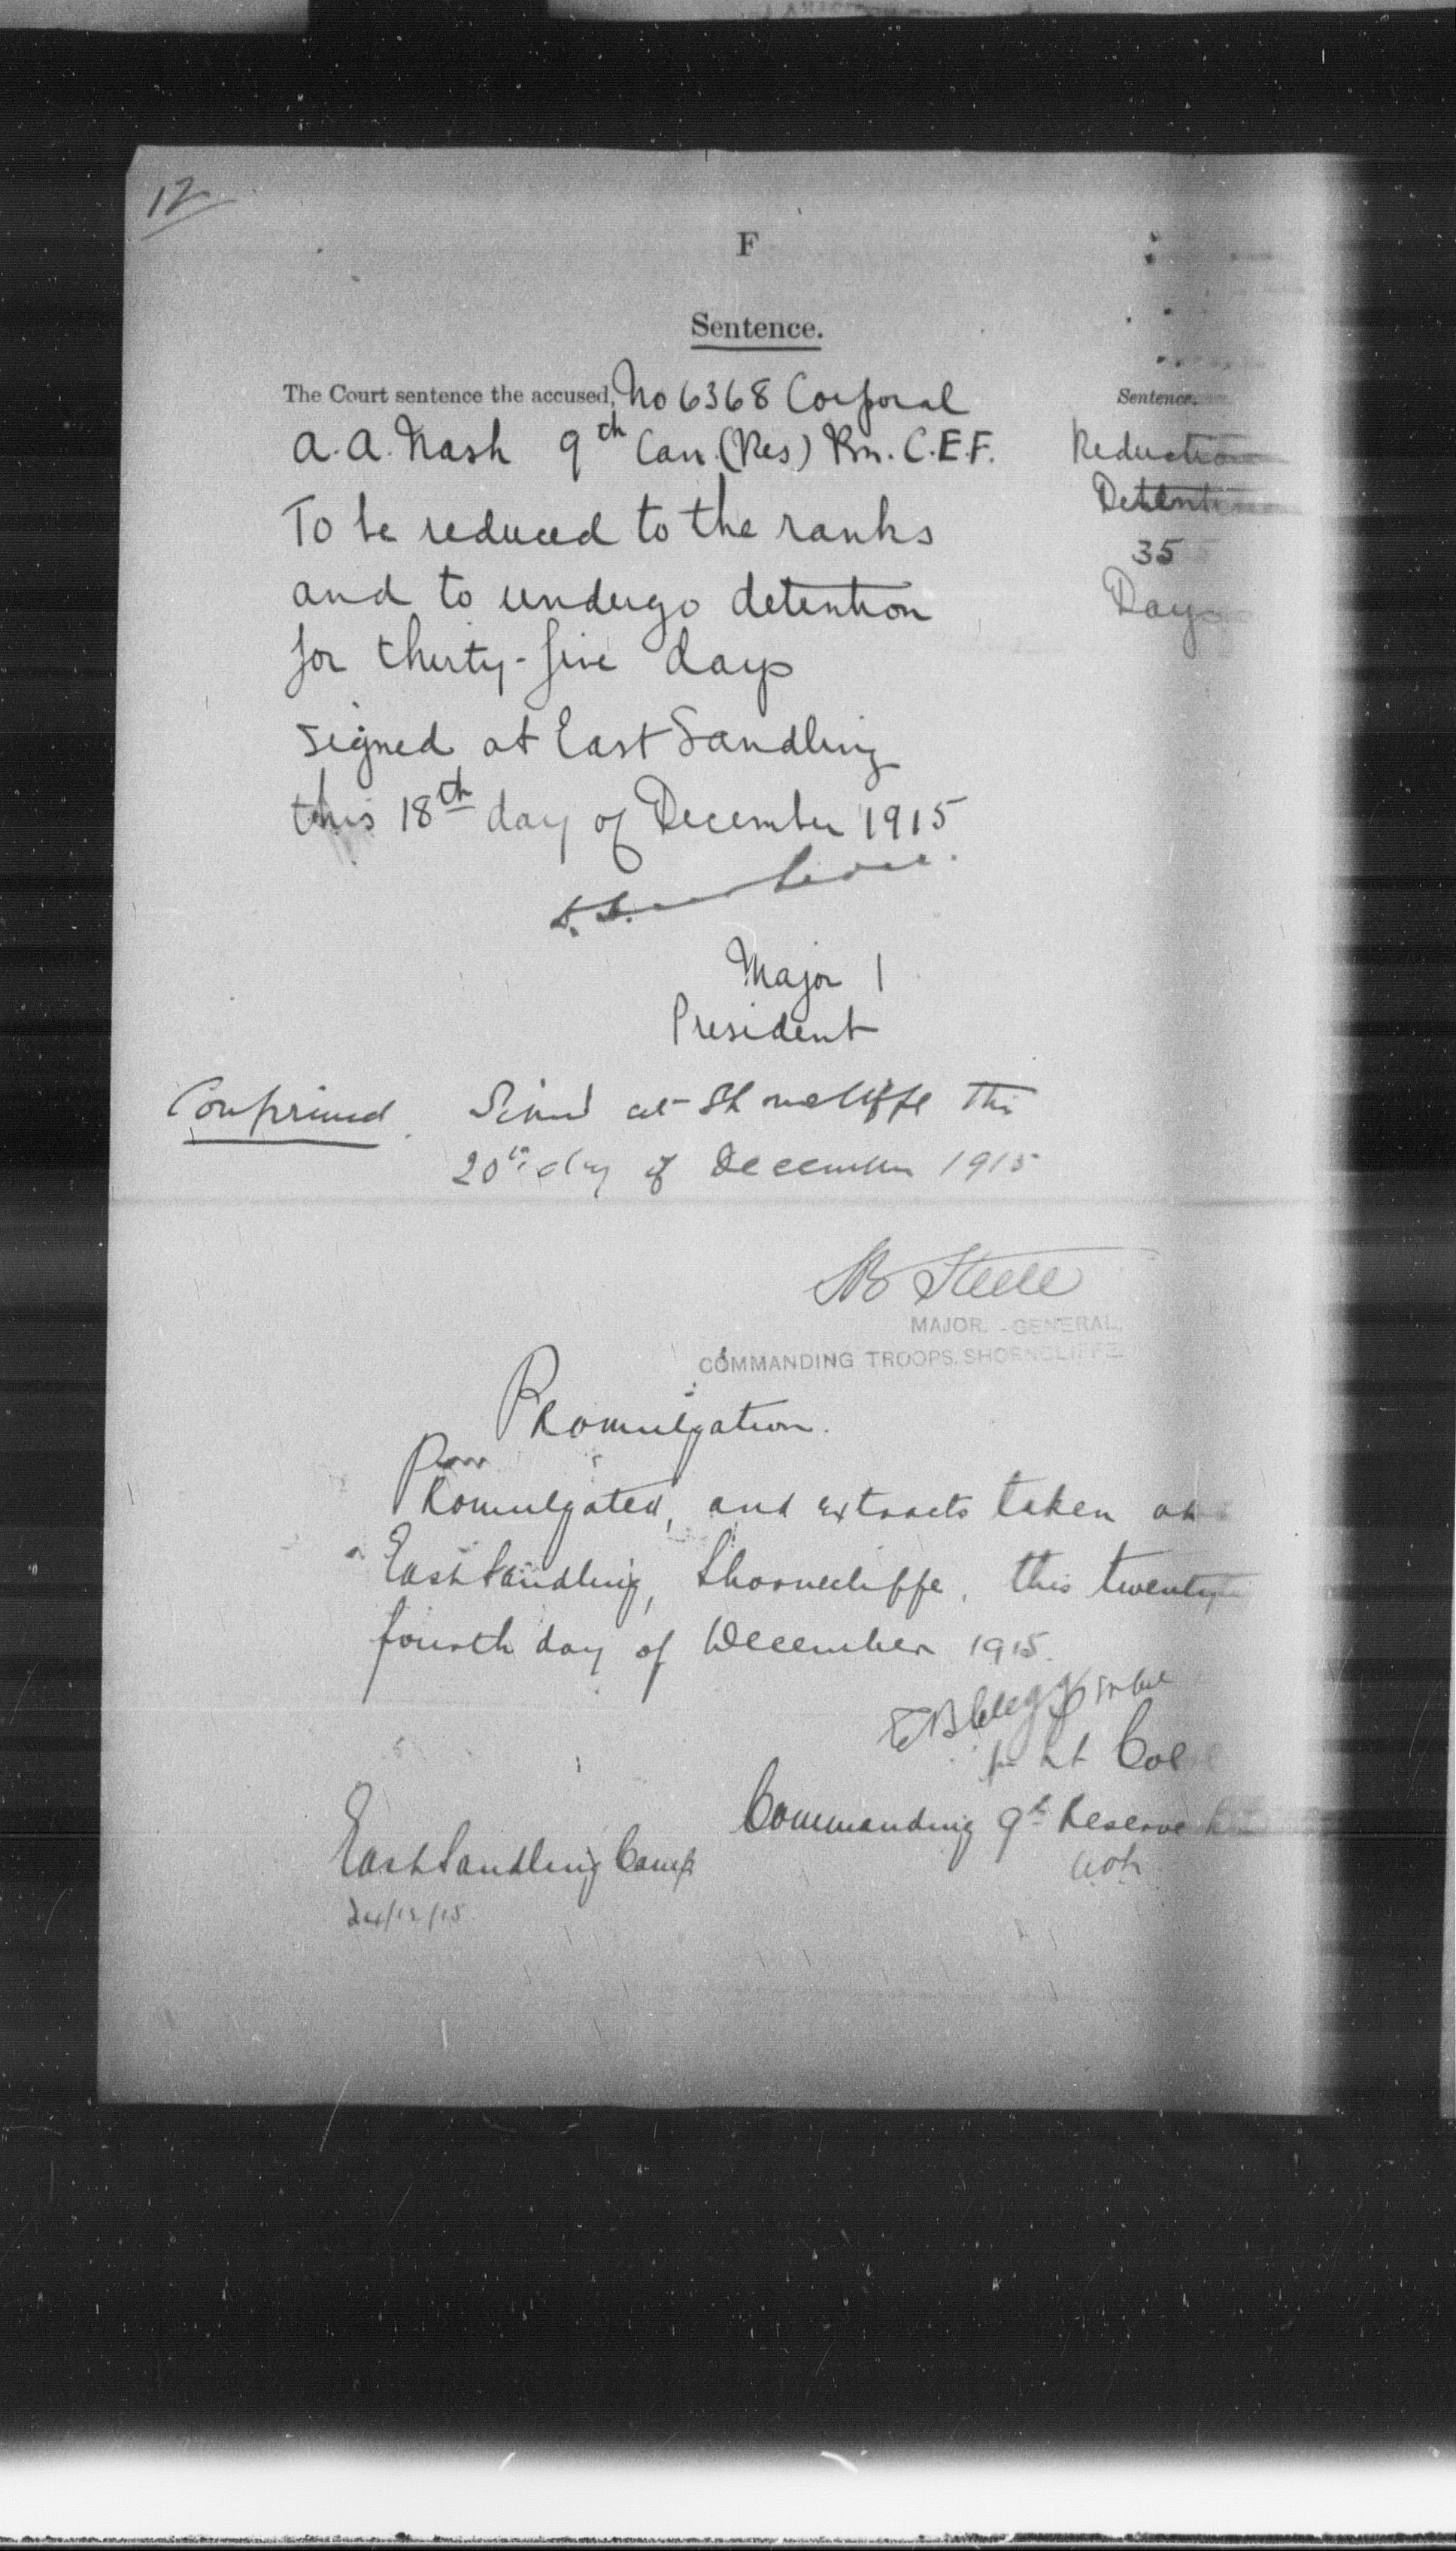 12
F
Sentence.
The Court sentence the accused, No 6368 Corporal
A.A. Nash 9th Can. (Res) Bn. C.E.F.
To be reduced to the ranks
and to undergo detention
for thirty-five days
signed at East Sandling
this 18th day of December 1915
Major
President
Sentence.
Reduction
Detention
35
Days
Confirmed. Signed at Shorncliffe this
20th day of December 1915
SB Steele
MAJOR - GENERAL,
COMMANDING TROOPS, SHORNCLIFFE.
Promulgation.
Promulgated, and extracts taken at
East Sandling, Shorncliffe, this twenty
fourth day of December 1915.
E B Clegg
for Lt Col
Commanding 9th Reserve
East Sandling Camp
24/12/15